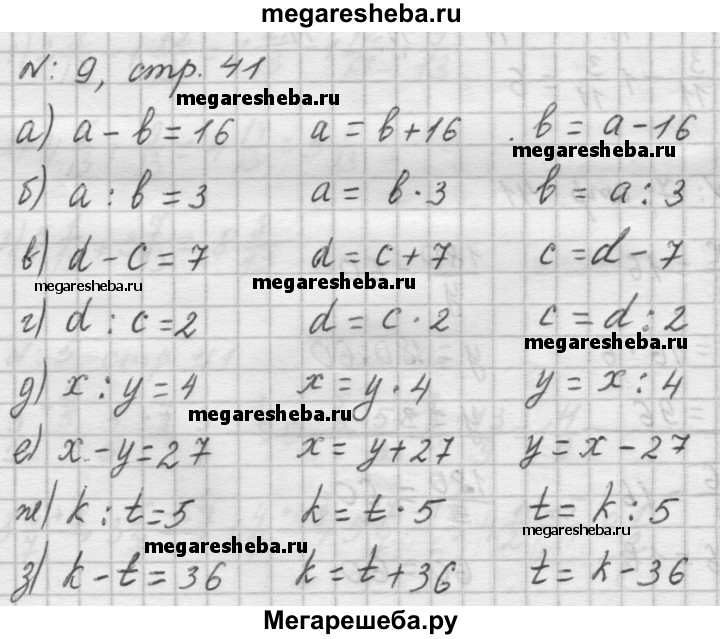 megaresheba.ru
N: 9, стр. 41
megaresheba.ru
а) a - b = 16 a = b + 16 b = a - 16
megaresheba.ru
б) a : b = 3 a = b · 3 b = a : 3
в) d - c = 7 d = c + 7 c = d - 7
megaresheba.ru megaresheba.ru
г) d : c = 2 d = c · 2 c = d : 2
megaresheba.ru
д) x : y = 4 x = y · 4 y = x : 4
megaresheba.ru
е) x - y = 27 x = y + 27 y = x - 27
ж) k : t = 5 k = t · 5 t = k : 5
megaresheba.ru
megaresheba.ru
з) k - t = 36 k = t + 36 t = k - 36
Мегарешеба.ру